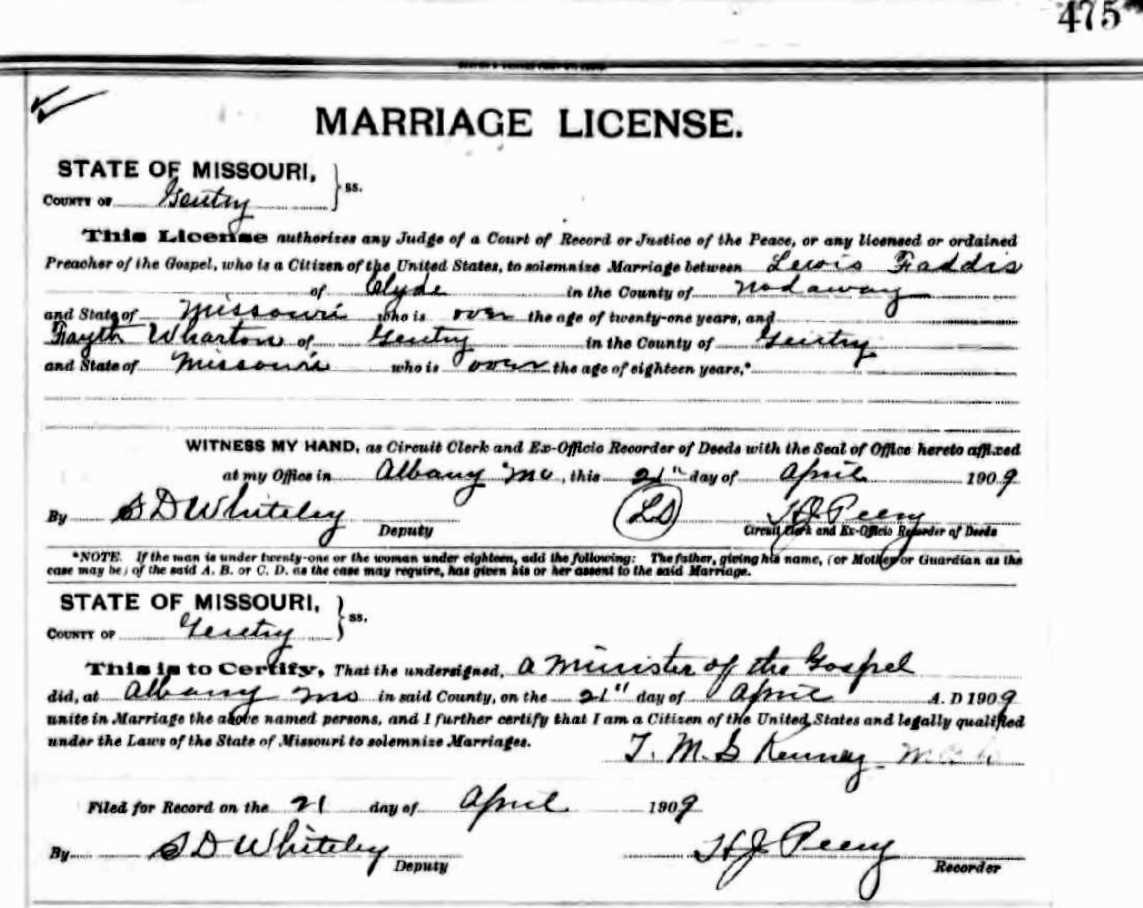 475
MARRIAGE LICENSE.
STATE OF MISSOURI,
COUNTY OF Gentry } ss.
This License authorizes any Judge of a Court of Record or Justice of the Peace, or any licensed or ordained
Preacher of the Gospel, who is a Citizen of the United States, to solemnize Marriage between Lewis Faddis
of Clyde in the County of Nodaway
and State of Missouri who is over the age of twenty-one years, and
Fayth Wharton of Gentry in the County of Gentry
and State of Missouri who is over the age of eighteen years,*
WITNESS MY HAND, as Circuit Clerk and Ex-Officio Recorder of Deeds with the Seal of Office hereto affixed
at my Office in Albany Mo, this 21" day of April 1909
By S D Whiteley Deputy (LS) H J Peery
Circuit Clerk and Ex-Officio Recorder of Deeds
*NOTE. If the man is under twenty-one or the woman under eighteen, add the following: The father, giving his name, (or Mother or Guardian as the
case may be) of the said A. B. or C. D. as the case may require, has given his or her assent to the said Marriage.
STATE OF MISSOURI,
COUNTY OF Gentry } ss.
This is to Certify, That the undersigned, a Minister of the Gospel
did, at Albany Mo in said County, on the 21" day of April A. D 1909
unite in Marriage the above named persons, and I further certify that I am a Citizen of the United States and legally qualified
under the Laws of the State of Missouri to solemnize Marriages.
T. M. S Kenney
Filed for Record on the 21 day of April 1909
By S D Whiteley Deputy H J Peery Recorder